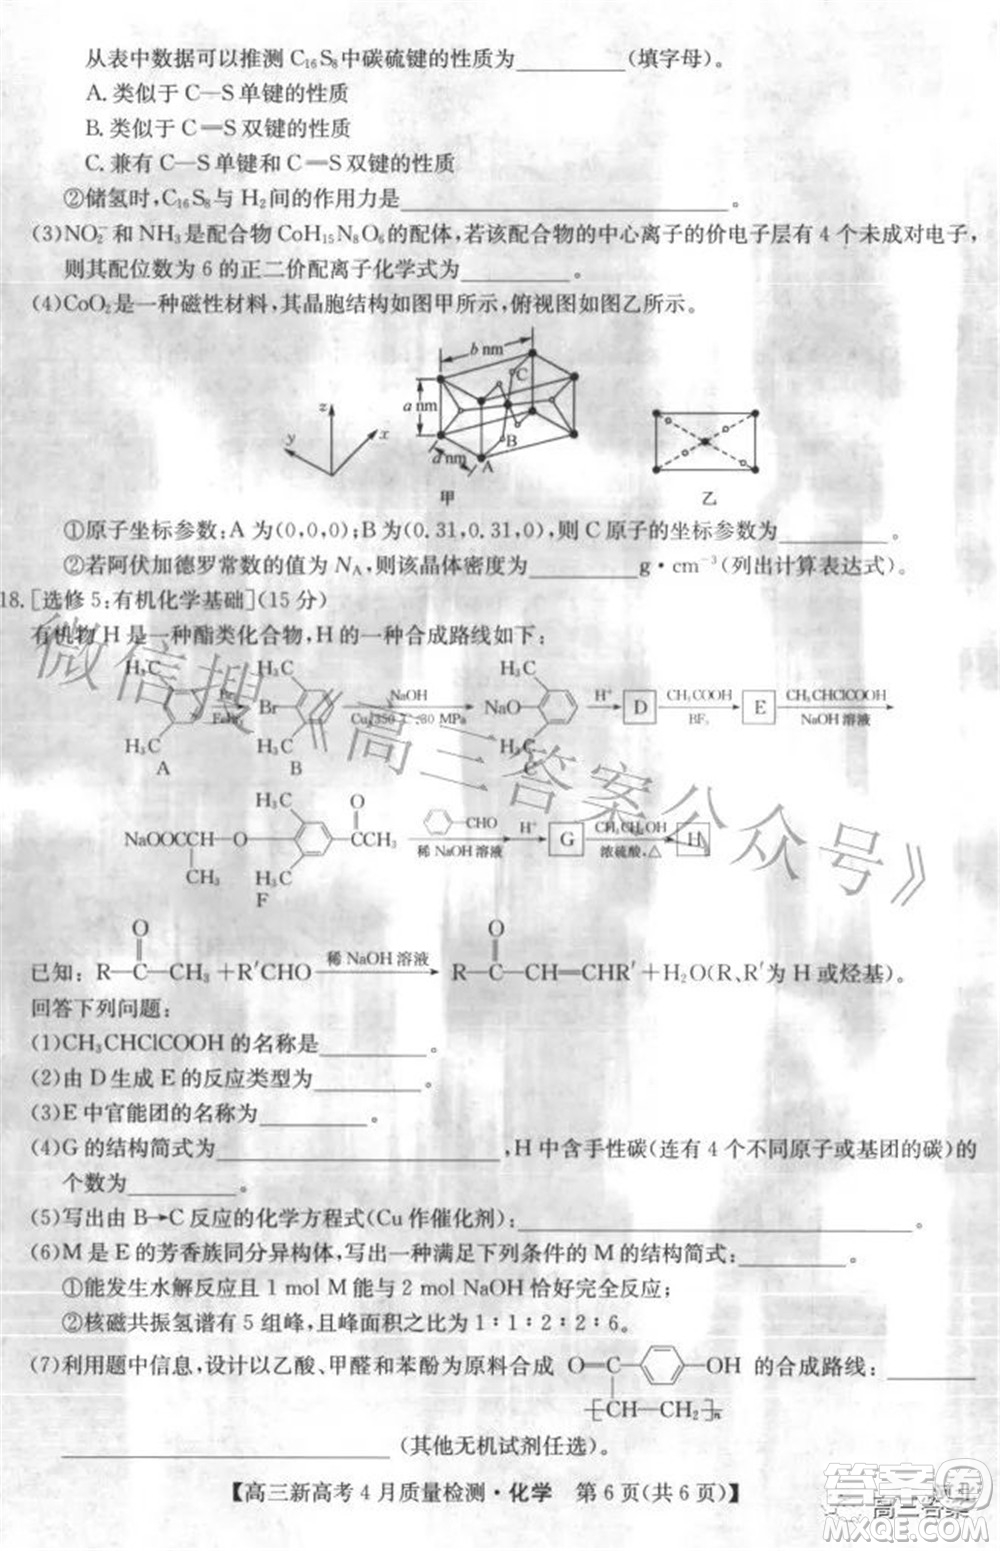 从表中数据可以推测 C₁₆S₈ 中碳硫键的性质为________(填字母)。
A. 类似于 C—S 单键的性质
B. 类似于 C═S 双键的性质
C. 兼有 C—S 单键和 C═S 双键的性质
②储氢时,C₁₆S₈ 与 H₂ 间的作用力是________________________。
(3)NO₂⁻ 和 NH₃ 是配合物 CoH₁₅N₈O₆ 的配体,若该配合物的中心离子的价电子层有 4 个未成对电子,
则其配位数为 6 的正二价配离子化学式为________。
(4)CoO₂ 是一种磁性材料,其晶胞结构如图甲所示,俯视图如图乙所示。
b nm
C
z
a nm
x
y
B
d nm
A
甲
乙
①原子坐标参数:A 为(0,0,0);B 为(0.31,0.31,0),则 C 原子的坐标参数为________。
②若阿伏加德罗常数的值为 N_A,则该晶体密度为________g·cm⁻³(列出计算表达式)。
18.[选修 5:有机化学基础](15 分)
有机物 H 是一种酯类化合物,H 的一种合成路线如下:
H₃C H₃C H₃C
Br NaOH NaO H⁺ D CH₃COOH BF₃ E CH₃CHClCOOH NaOH 溶液
H₃C H₃C H₃C
A B C
H₃C O
NaOOCCH—O— CCH₃ —CHO 稀 NaOH 溶液 H⁺ G CH₃CH₂OH 浓硫酸,△ H
CH₃ H₃C
F
已知:R—C(O)—CH₃+R′CHO 稀 NaOH 溶液 R—C(O)—CH═CHR′+H₂O(R、R′为 H 或烃基)。
回答下列问题:
(1)CH₃CHClCOOH 的名称是________。
(2)由 D 生成 E 的反应类型为________。
(3)E 中官能团的名称为________。
(4)G 的结构简式为________________________,H 中含手性碳(连有 4 个不同原子或基团的碳)的
个数为________。
(5)写出由 B→C 反应的化学方程式(Cu 作催化剂):________________________________。
(6)M 是 E 的芳香族同分异构体,写出一种满足下列条件的 M 的结构简式:____________。
①能发生水解反应且 1 mol M 能与 2 mol NaOH 恰好完全反应;
②核磁共振氢谱有 5 组峰,且峰面积之比为 1∶1∶2∶2∶6。
(7)利用题中信息,设计以乙酸、甲醛和苯酚为原料合成 O═C—OH 的合成路线:________
⁅CH—CH₂⁆n
________________________(其他无机试剂任选)。
【高三新高考 4 月质量检测·化学 第 6 页(共 6 页)】
微信搜《高三答案公众号》
答案圈
MXQE.COM
高三答案